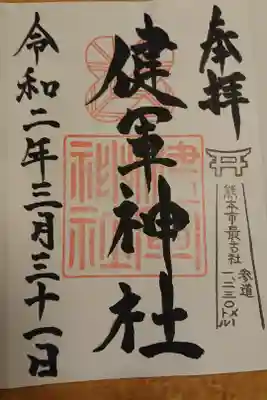 奉拝
熊本市最古社
参道
一二三〇メートル
健軍神社
令和二年三月三十一日